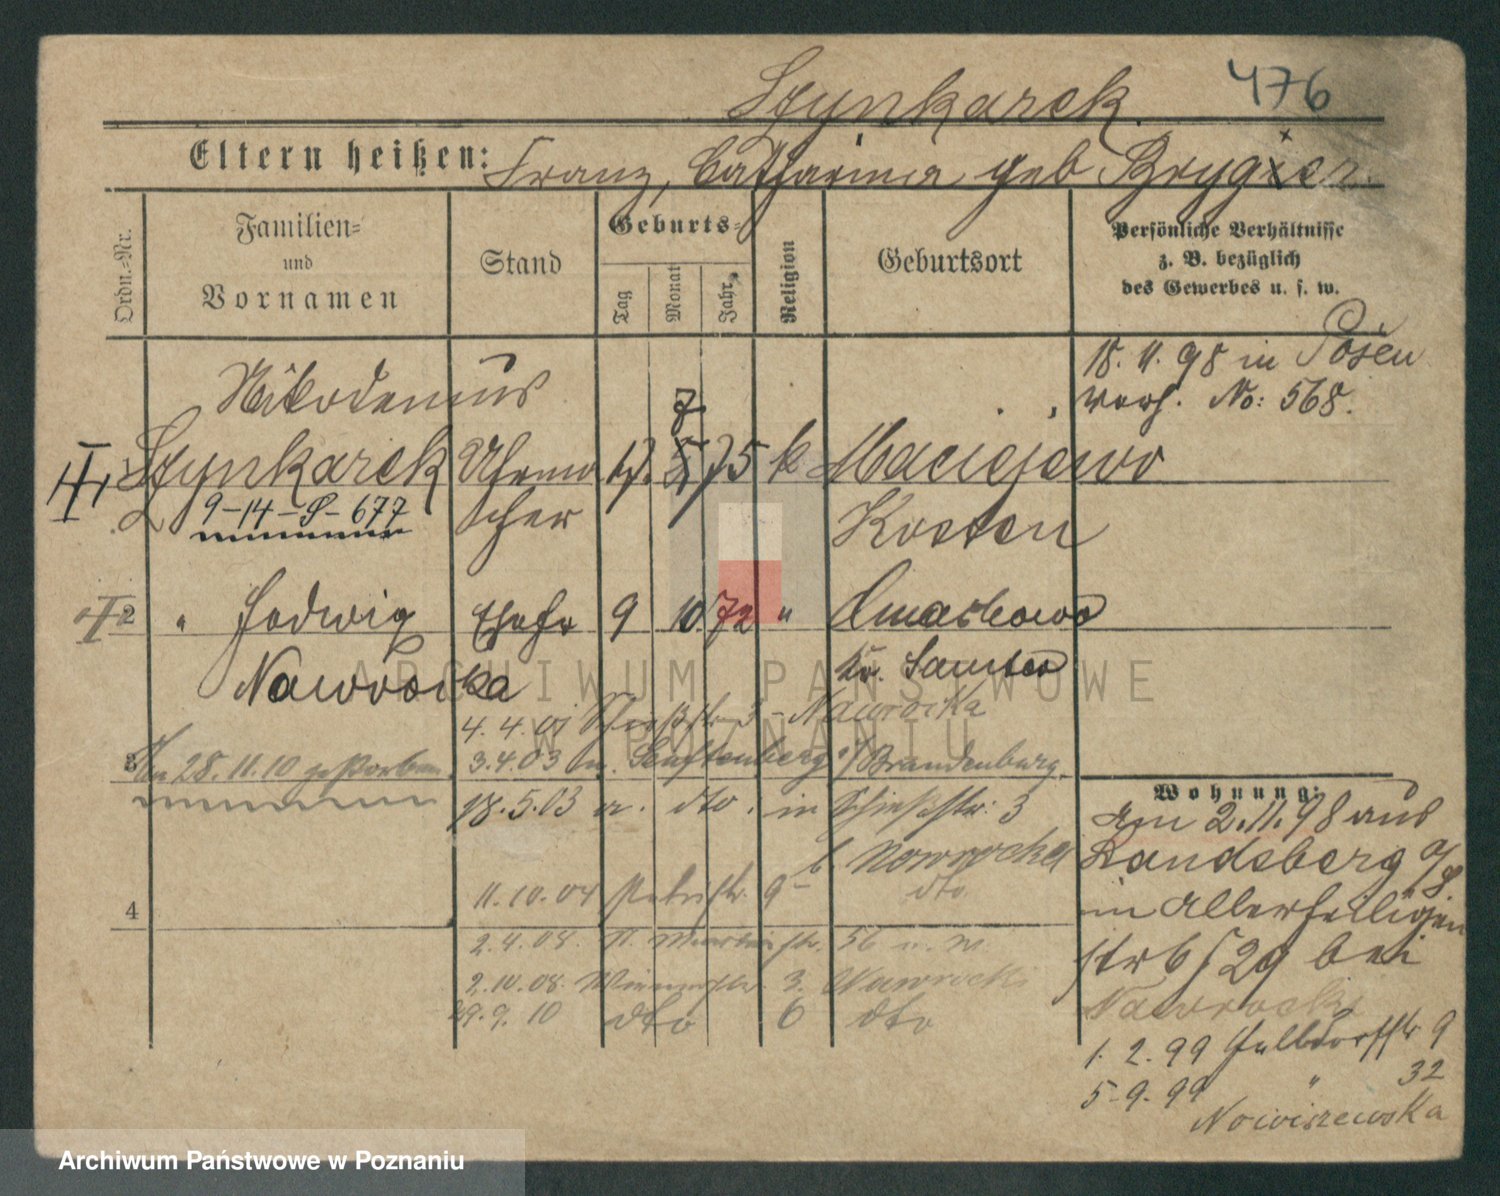 Szynkarek. 476
Eltern heißen: Franz, Catharina geb Brygier
Ordn.-Nr.
Familien-
und
Vornamen
Stand
Geburts-
Tag
Monat
Jahr
Religion
Geburtsort
Persönliche Verhältnisse
z. B. bezüglich
des Gewerbes u. s. w.
Nikodemus
18. 11. 98 in Posen
verh. No: 568.
Szynkarek Uhrma 17. 7 75 k Maciejewo
9-14-S-677 cher Kosten
2 " Hedwig Ehefr 9 10 72 "
Kr. Samter
Nawrocka
4. 4. 01 3 - Nawrocka
3 Am 28. 11. 10 gestorben 3.4.03 n. Senftenberg Brandenburg.
18. 5. 03 a. dto. in Schießstr. 3
b. Nawrocka
11. 10. 04 Petristr. 9 dto
4
2. 4. 08. St. Martinstr. 56 b. N.
2. 10. 08. 3. Nawrocki
29. 9. 10 dto 6 dto
Wohnung:
Am 2. 11. 98 aus
Landsberg
in Allerheiligen
str 6 bei
Nawrocki
1. 2. 99 Halbdorfstr 9
5-9. 99 " 32
Nowiszewska
ARCHIWUM PAŃSTWOWE
W POZNANIU
Archiwum Państwowe w Poznaniu